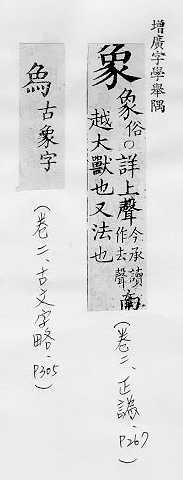 增廣字學舉隅
象 象俗○詳上聲今承讀作去聲南
越大獸也又法也
(卷二、正譌、P267)
古象字
(卷二、古文字略、P305)